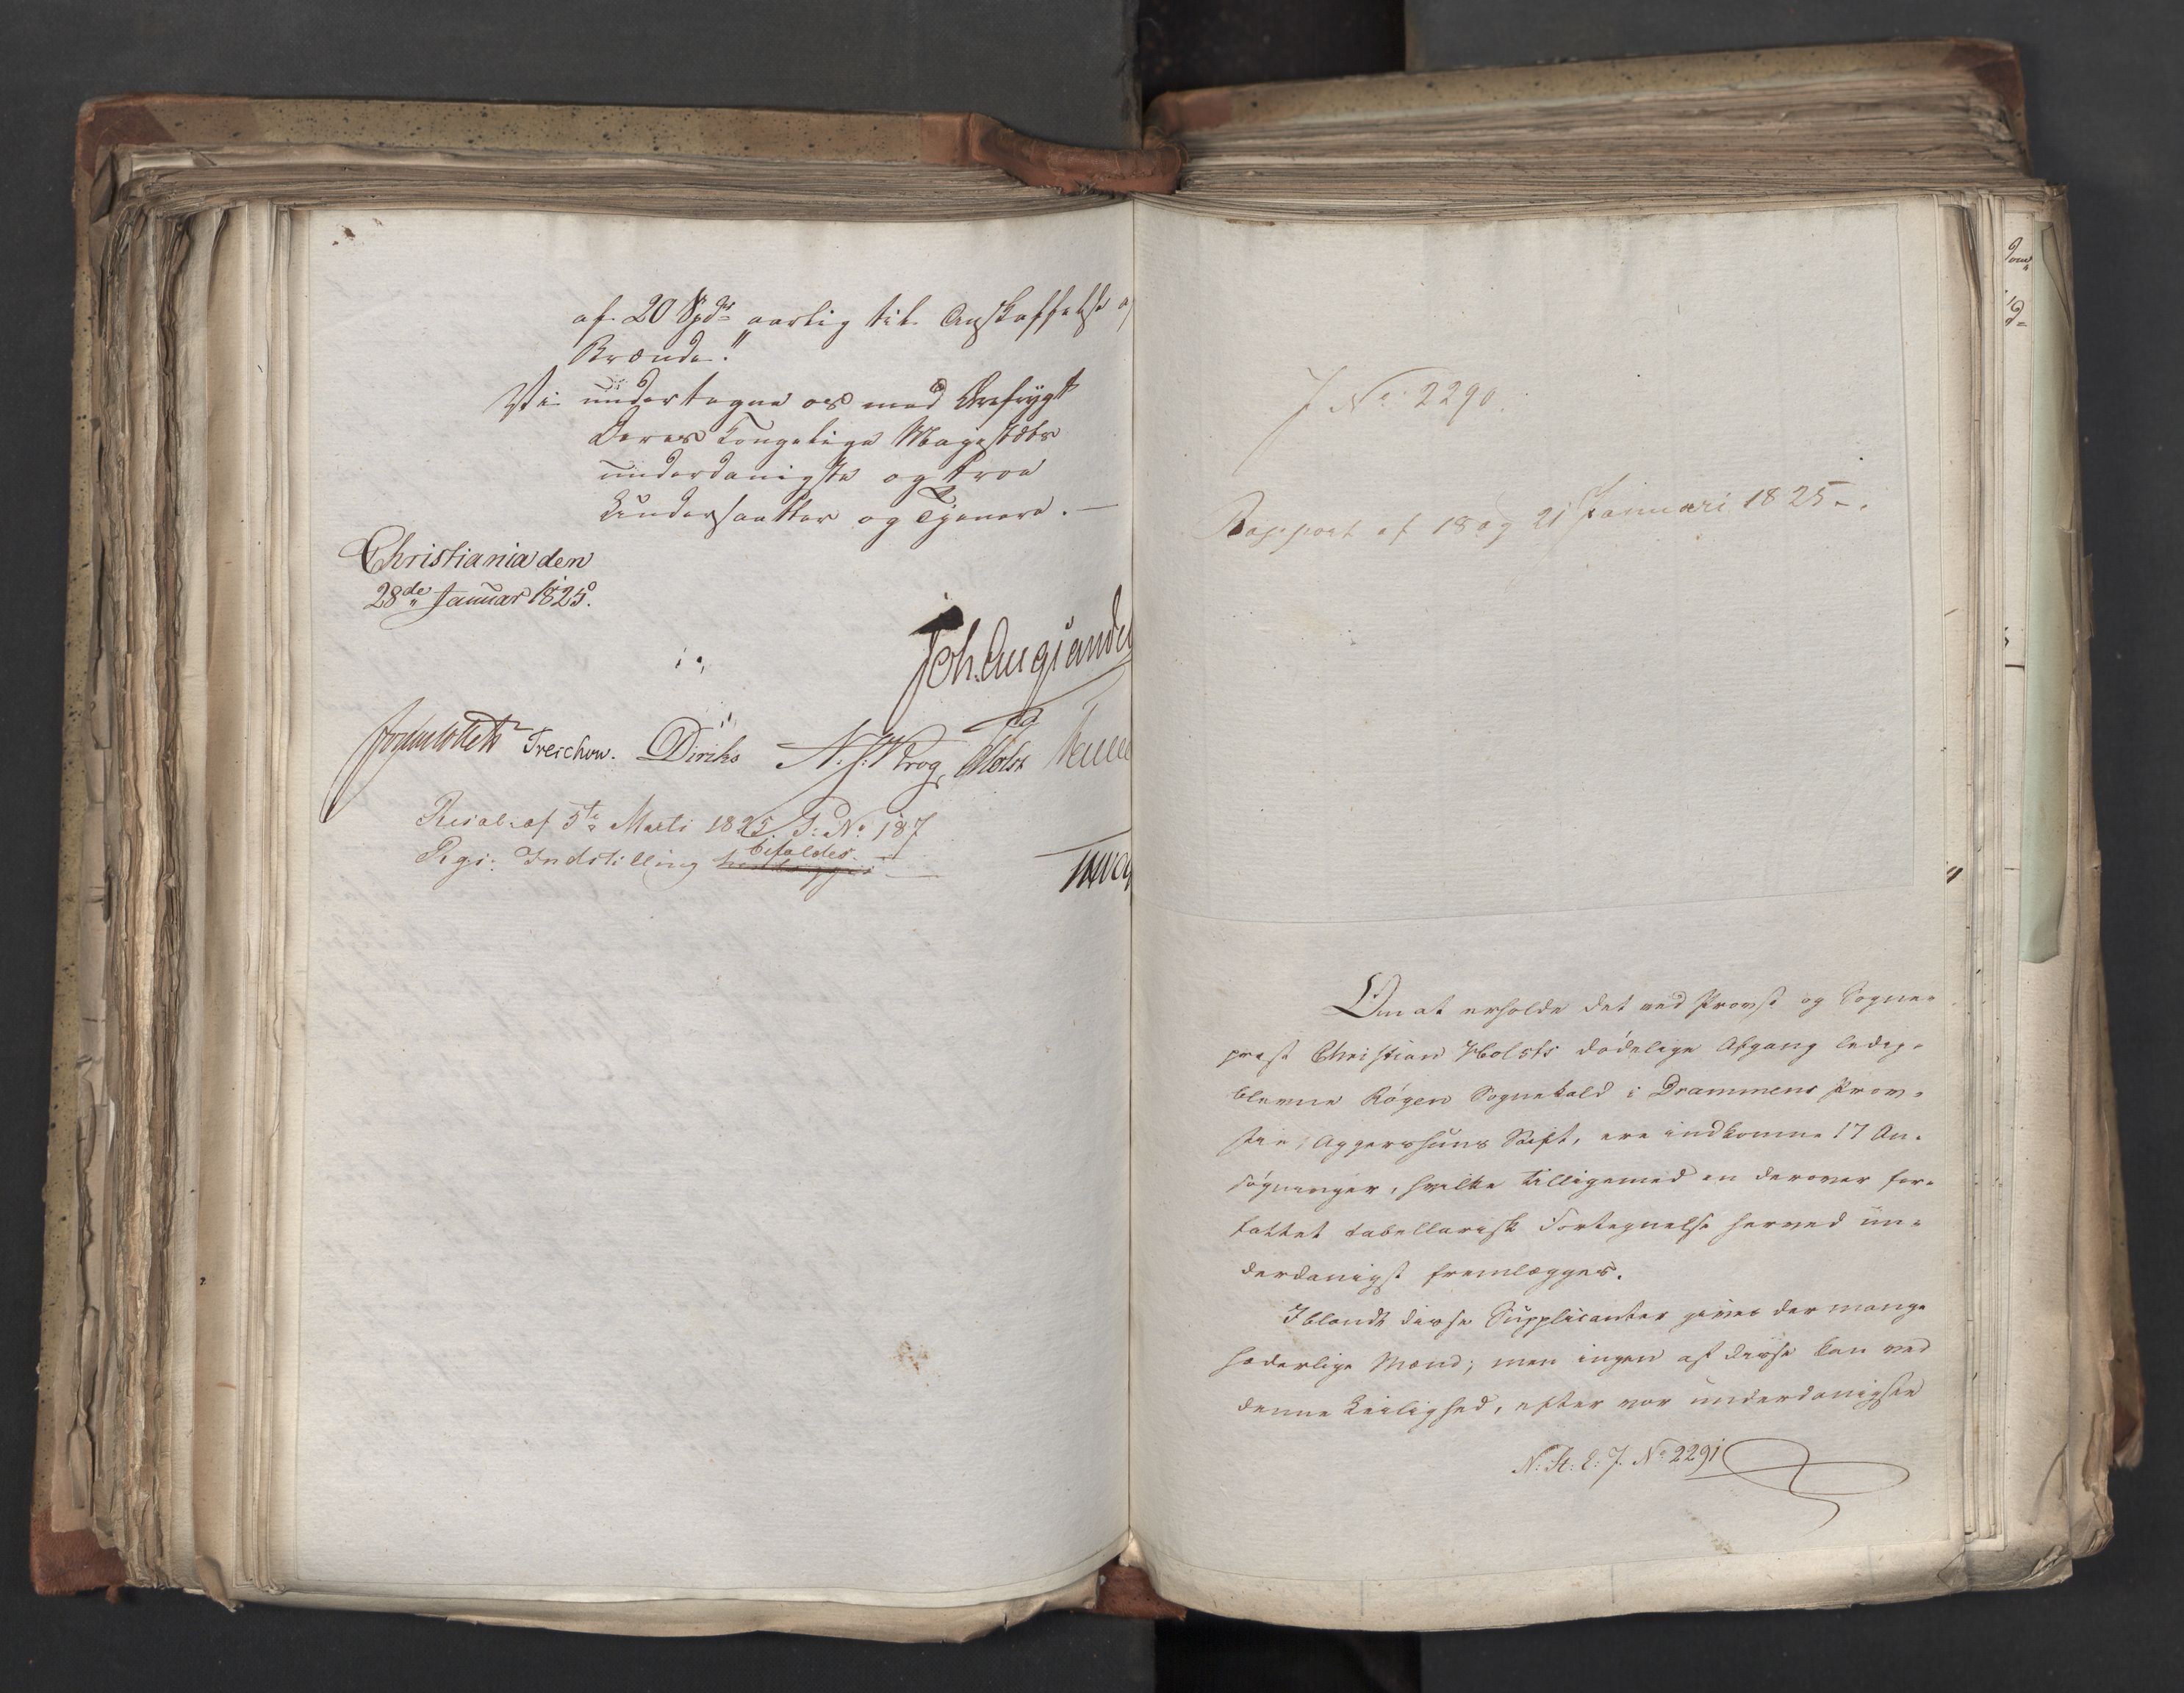 af 20 Spdr aarlig til Anskaffelse af
Brænde."
Vi undertegne os med Ærefrygt
Deres Kongelige Majestæts
underdanigste og troe
Undersaatter og Tjenere. —
Christiania den
28de Januar 1825.
Joh. Aug. Sandel
Treschow. Diriks N. J. Krog. Holst
Resol: af 5te Marti 1825 P: No 187
bifaldes.
Regj: Indstilling
J No 2290.
Rapport af 18 og 21 Januari 1825.
Om at erholde det ved Provst og Sogne-
præst Christian Holsts dødelige Afgang ledig-
blevne Røgen Sognekald i Drammens Prov-
stie, Aggershuus Stift, ere indkomne 17 An-
søgninger, hvilke tilligemed en derover for-
fattet tabellarisk Fortegnelse herved un-
derdanigst fremlægges.
Iblandt disse Supplicanter gives der mange
hæderlige Mænd; men ingen af disse kan ved
denne Leilighed, efter vor underdanigste
N: St: E: J. No 2291